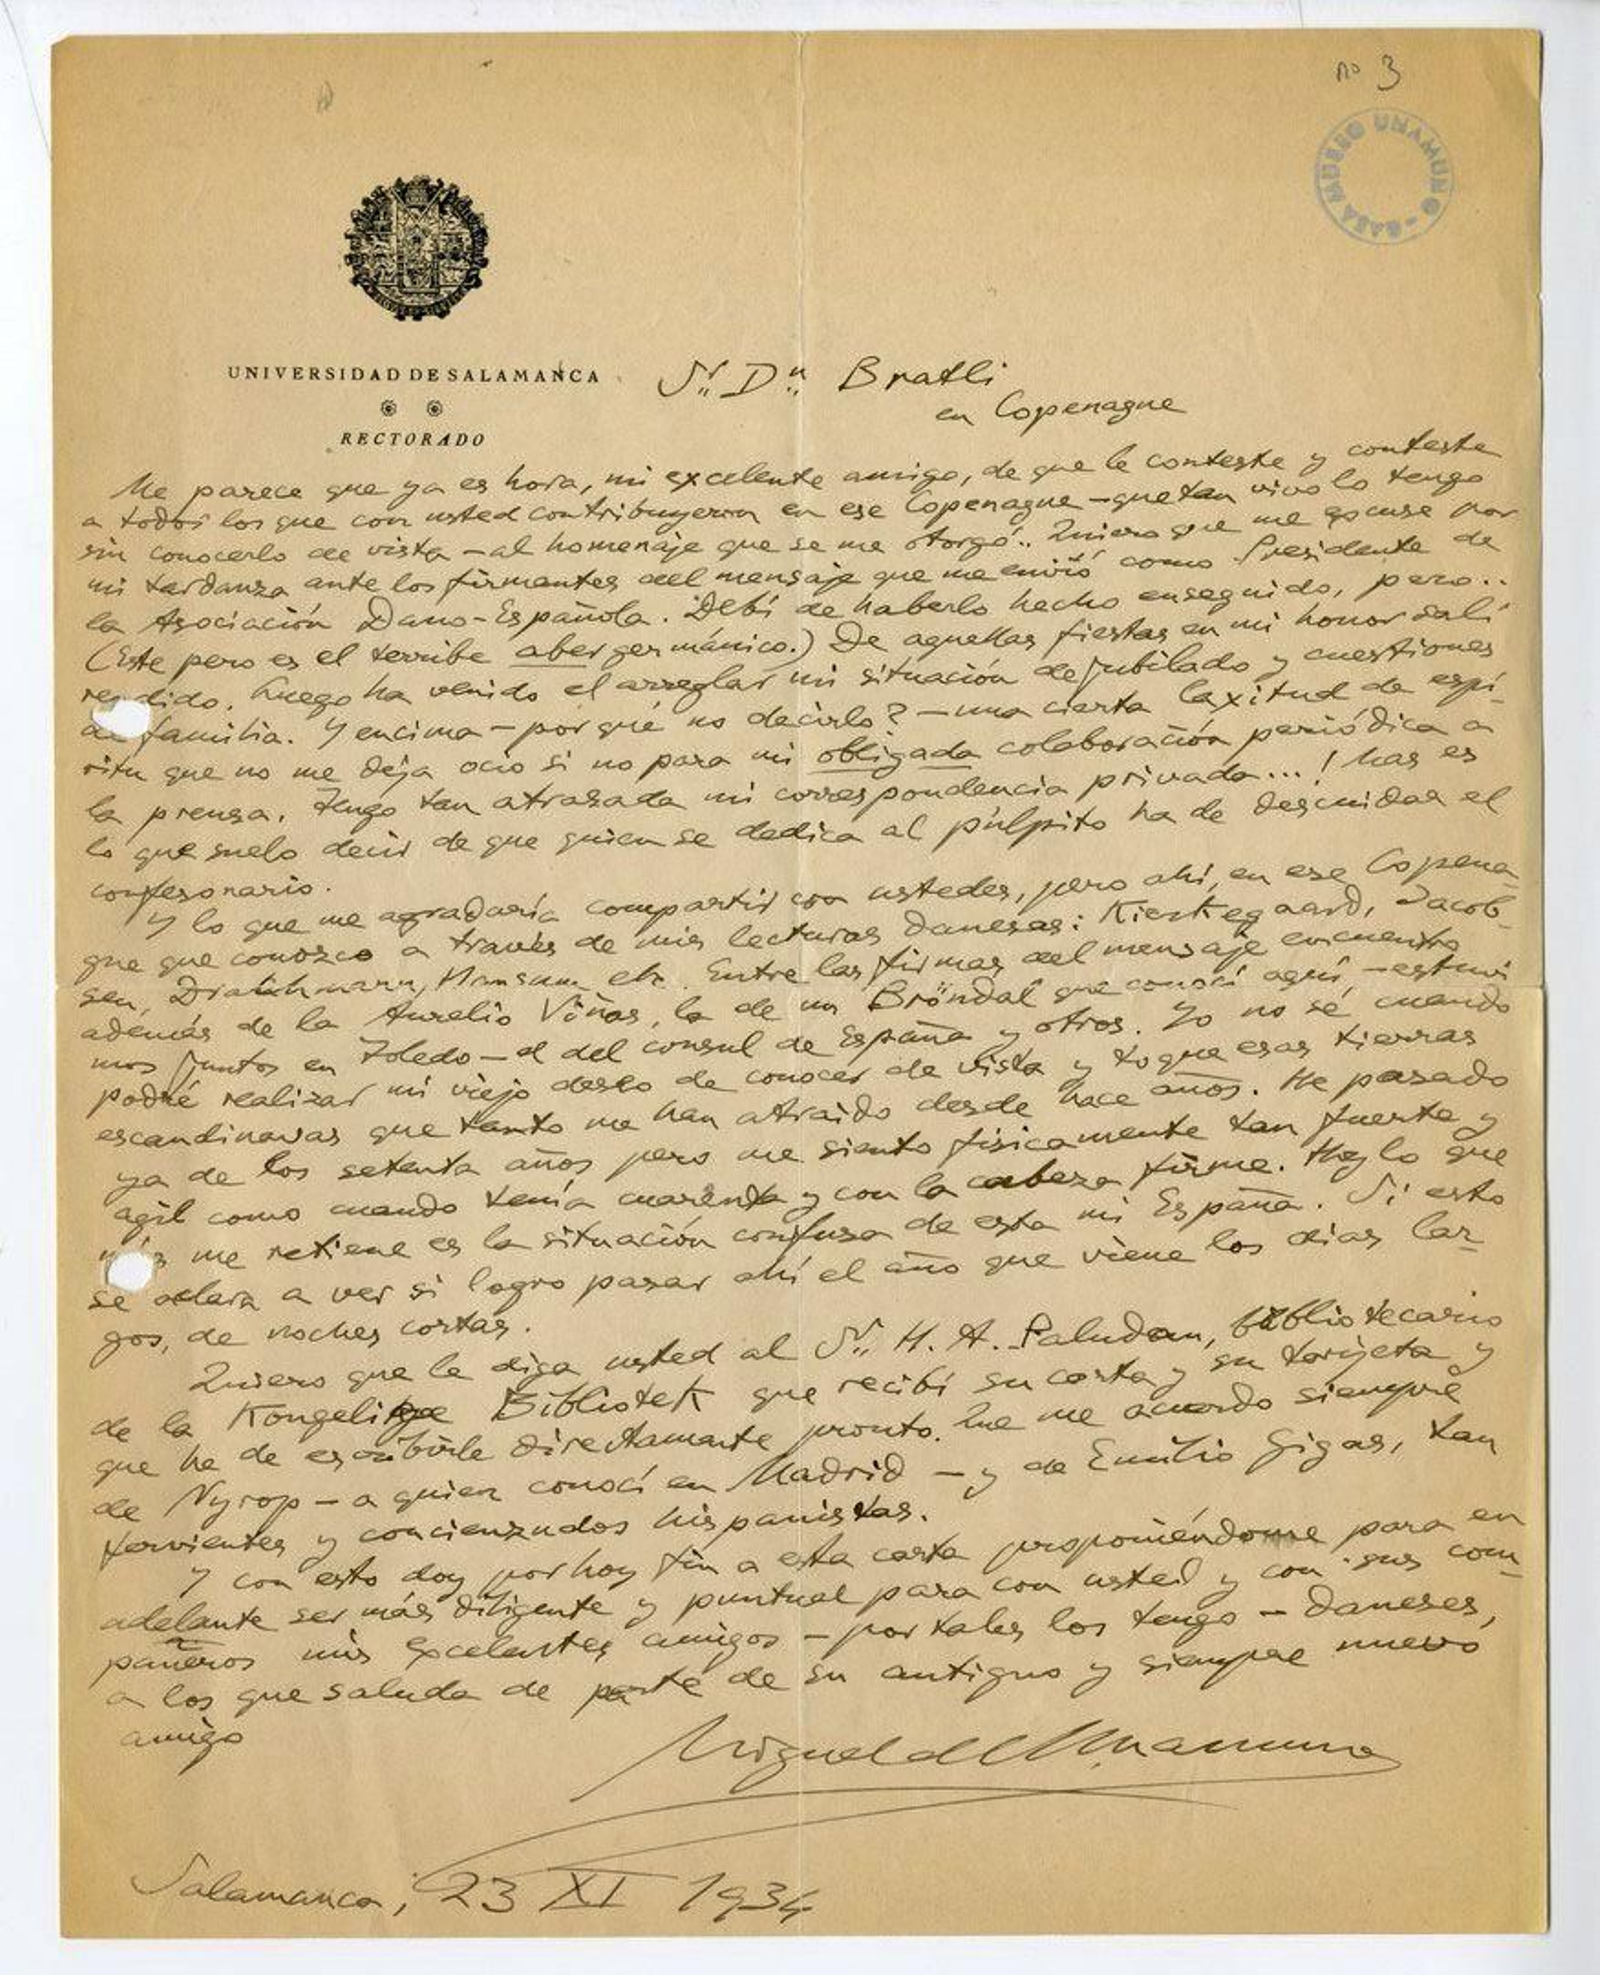 nº 3
CASA MUSEO UNAMUNO
UNIVERSIDAD DE SALAMANCA
RECTORADO
Sr. Dn. Bratli
en Copenague
Me parece que ya es hora, mi excelente amigo, de que le conteste y conteste
a todos los que con usted contribuyeron en ese Copenague – que tan vivo lo tengo
sin conocerlo de vista – al homenaje que se me otorgó.. Quiero que me excuse por
mi tardanza ante los firmantes del mensaje que me envió como Presidente de
la Asociación Dano-Española. Debí de haberlo hecho enseguido, pero..
(Este pero es el terribe aber germánico.) De aquellas fiestas en mi honor salí
rendido. Luego ha venido el arreglar mi situación de jubilado y cuestiones
de familia. Y encima – por qué no decirlo? – una cierta laxitud de espí-
ritu que no me deja ocio si no para mi obligada colaboración periódica a
la prensa. Tengo tan atrasada mi correspondencia privada...! Mas es
lo que suelo decir de que quien se dedica al púlpito ha de descuidar el
confesonario.
Y lo que me agradaría compartir con ustedes, pero ahí, en ese Copena-
gue que conozco a través de mis lecturas danesas: Kierkegaard, Jacob-
sen, Drachmann, Hamsum etc. Entre las firmas del mensaje encuentro
además de la Aurelio Viñas, la de un Bröndal que conocí aquí, – estuvi
mos juntos en Toledo – el del consul de España y otros. Yo no sé cuando
podré realizar mi viejo deseo de conocer de vista y toque esas tierras
escandinavas que tanto me han atraido desde hace años. He pasado
ya de los setenta años pero me siento físicamente tan fuerte y
agil como cuando tenía cuarenta y con la cabeza firme. Hoy lo que
más me retiene es la situación confusa de esta mi España. Si esto
se aclara a ver si logro pasar ahí el año que viene los dias lar-
gos, de noches cortas.
Quiero que le diga usted al Sr. H. A. Paludan, bibliotecario
de la Kongelige Bibliotek que recibí su carta y su tarjeta y
que he de escribirle directamente pronto. Que me acuerdo siempre
de Nyrop – a quien conocí en Madrid – y de Emilio Gigas, tan
fervientes y concienzudos hispanistas.
Y con esto doy por hoy fin a esta carta proponiéndome para en
adelante ser más diligente y puntual para con usted y con sus com-
pañeros mis excelentes amigos – por tales los tengo – daneses,
a los que saluda de parte de su antiguo y siempre nuevo
amigo
Miguel de Unamuno
Salamanca, 23 XI 1934